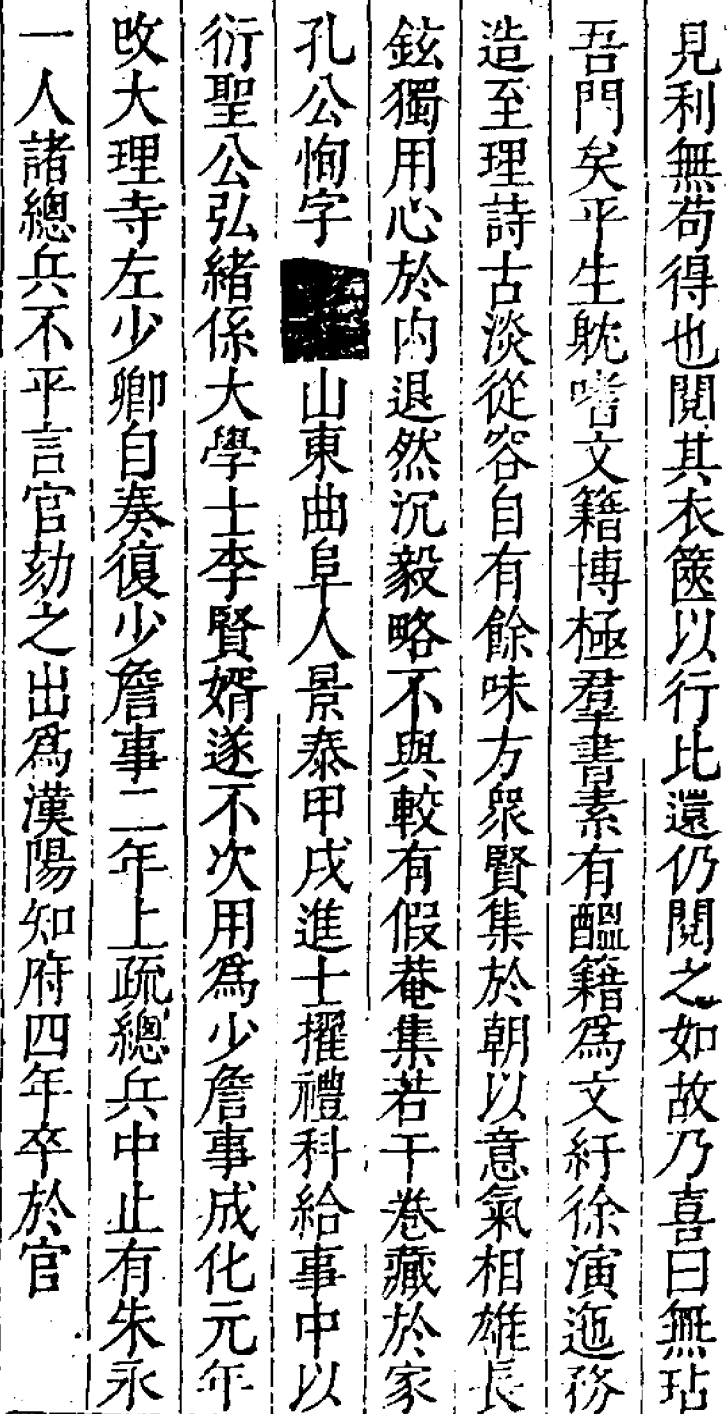 見利無苟得也閱其衣篋以行比還仍閱之如故乃喜曰無玷
吾門矣平生躭嗜文籍博極羣書素有醞籍爲文紆徐演迤務
造至理詩古淡從容自有餘味方衆賢集於朝以意氣相雄長
鉉獨用心於内退然沉毅略不與較有假菴集若干卷藏於家
孔公恂字山東曲阜人景泰甲戌進士擢禮科給事中以
衍聖公弘緒係大學士李賢婿遂不次用爲少詹事成化元年
改大理寺左少卿自奏復少詹事二年上疏總兵中止有朱永
一人諸總兵不平言官劾之出爲漢陽知府四年卒於官